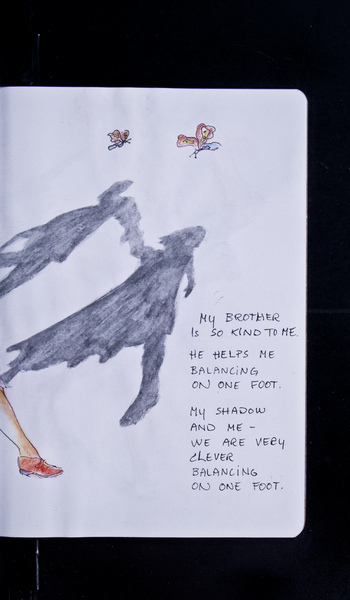 My BROTHER
IS SO KIND TO ME.
HE HELPS ME
BALANCING
ON ONE FOOT.
My SHADOW
AND ME -
WE ARE VERY
CLEVER
BALANCING
ON ONE FOOT.